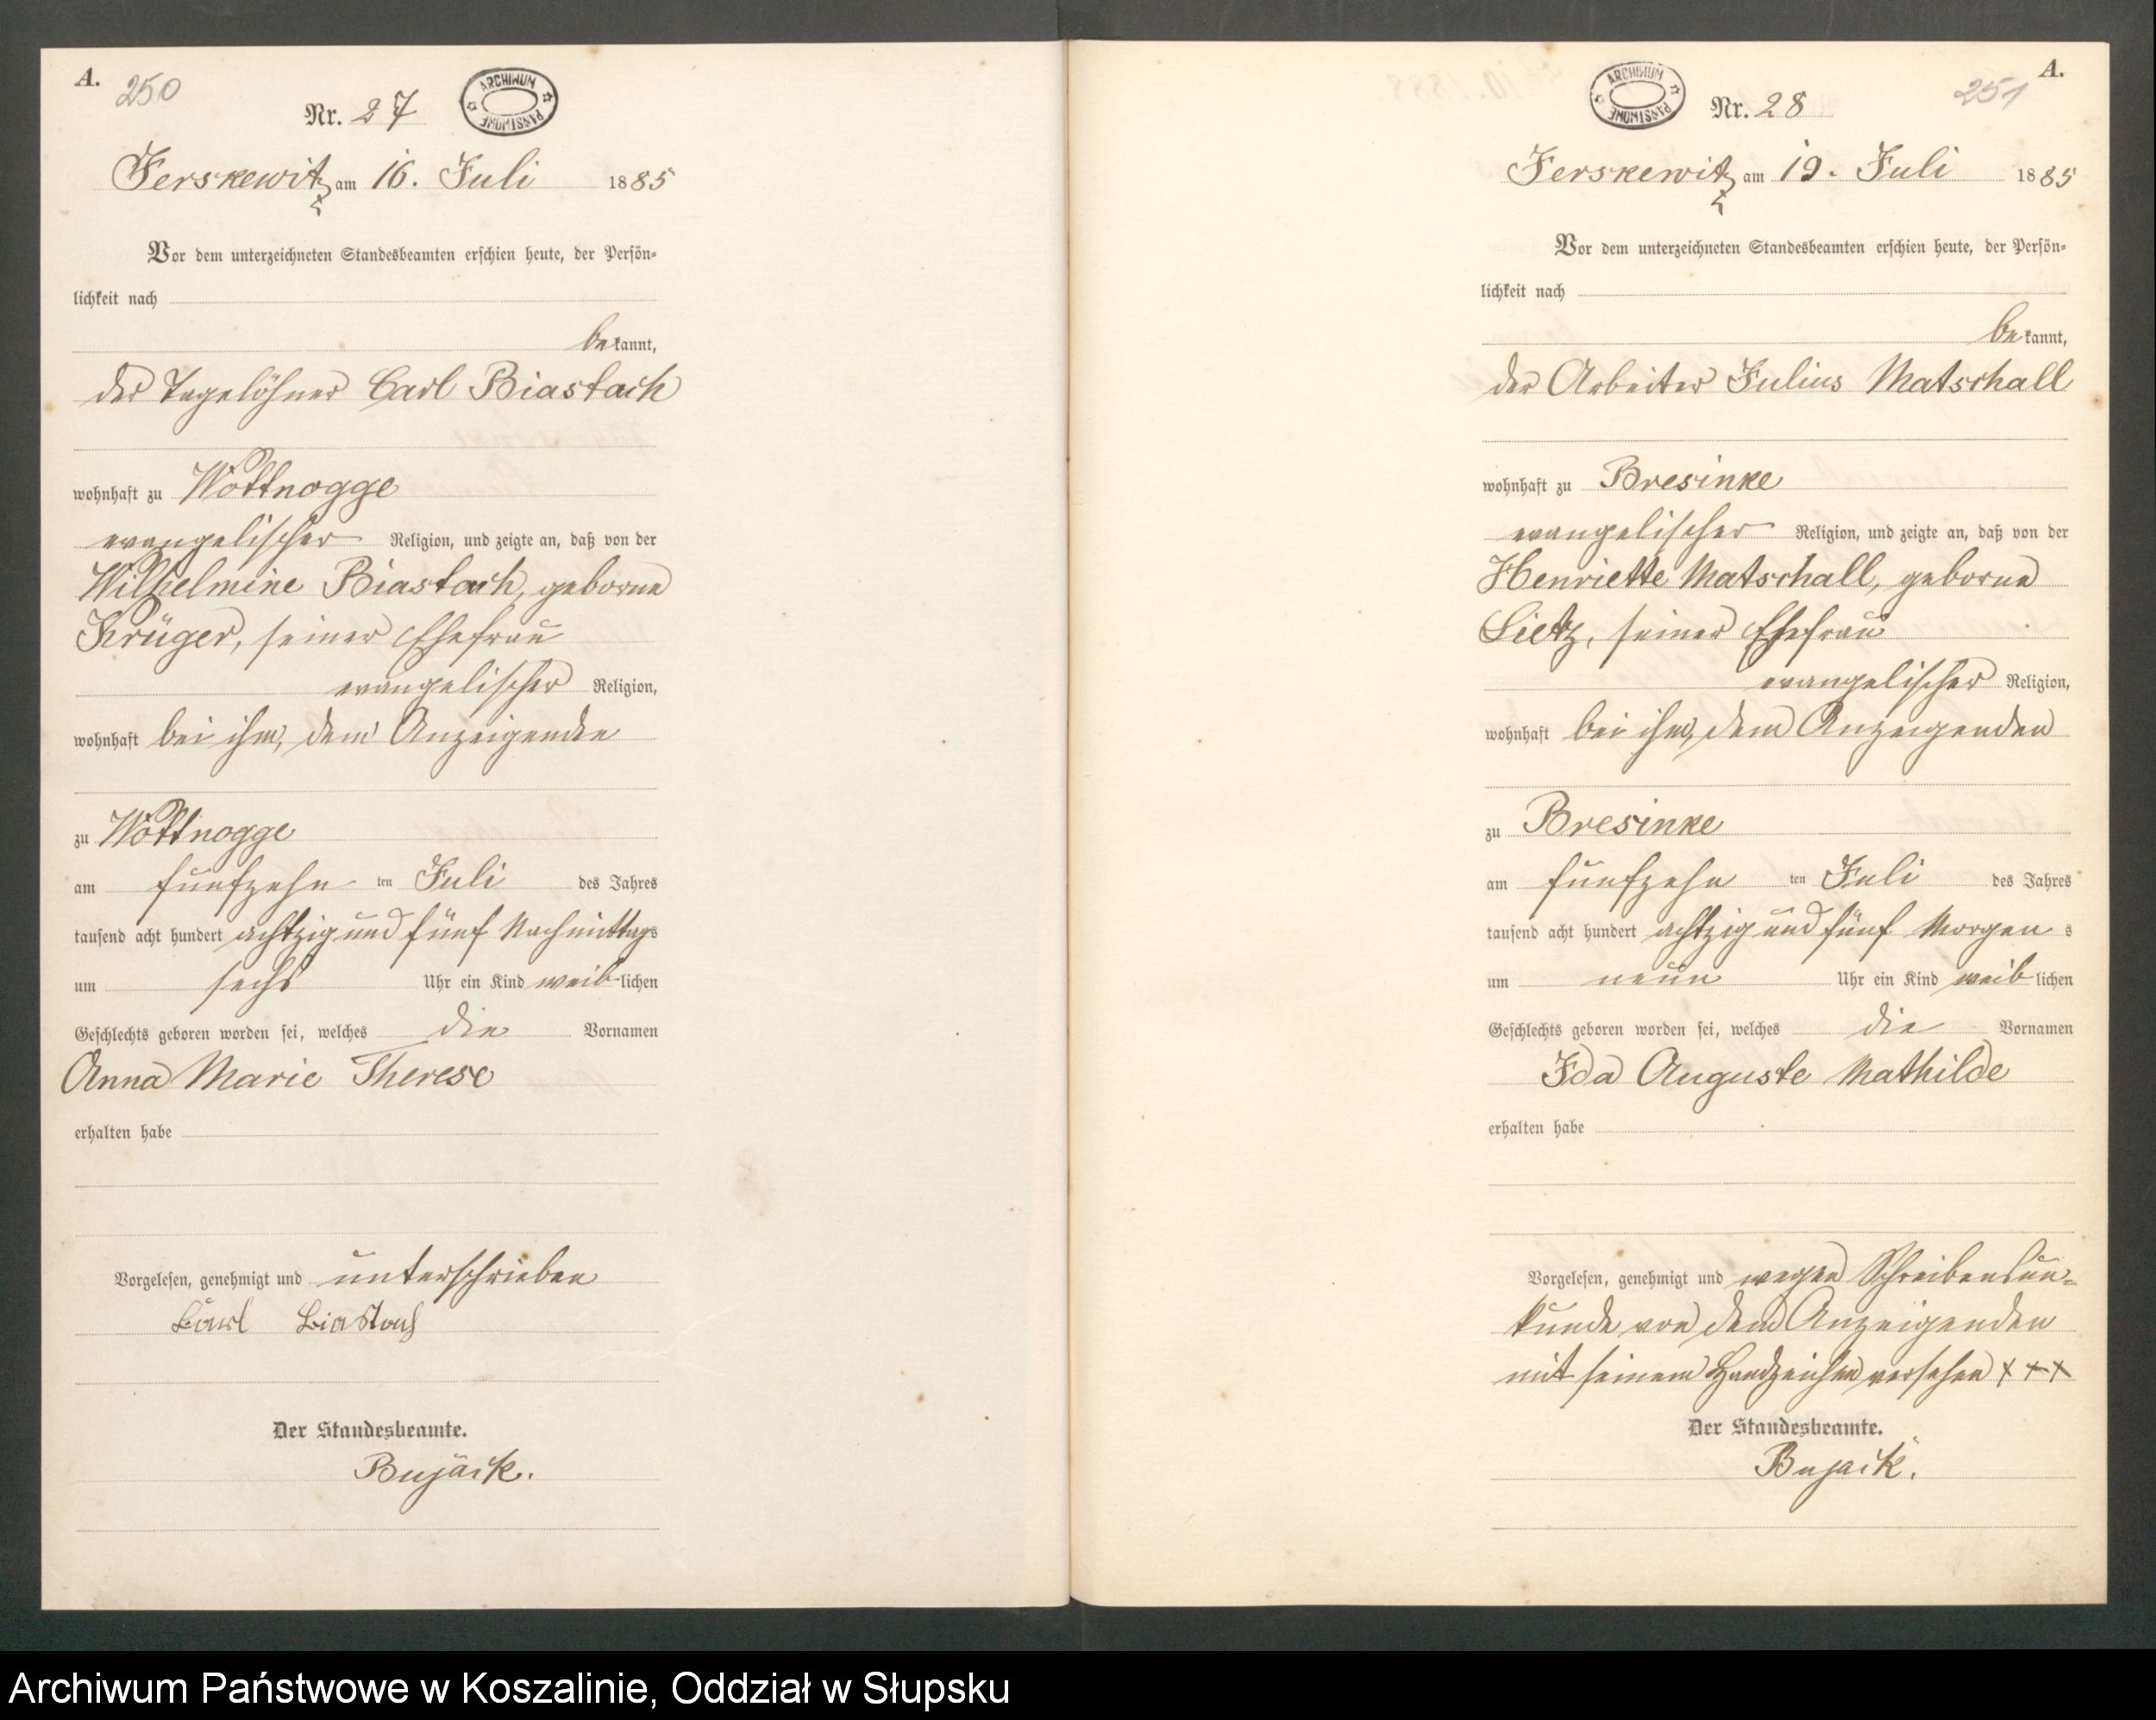 A.
250
Nr. 27
ARCHIWUM PAŃSTWOWE
Jerskewitz am 16. Juli 1885
Vor dem unterzeichneten Standesbeamten erschien heute, der Persön-
lichkeit nach
bekannt,
der Tagelöhner Carl Biastoch
wohnhaft zu Wottnogge
evangelischer Religion, und zeigte an, daß von der
Wilhelmine Biastoch, geborne
Krüger, seiner Ehefrau
evangelischer Religion,
wohnhaft bei ihm, dem Anzeigenden
zu Wottnogge
am fünfzehn ten Juli des Jahres
tausend acht hundert achtzig und fünf Nachmittags
um sechs Uhr ein Kind weiblichen
Geschlechts geboren worden sei, welches die Vornamen
Anna Marie Therese
erhalten habe
Vorgelesen, genehmigt und unterschrieben
Carl Biastoch
Der Standesbeamte.
Bujack.
A.
251
ARCHIWUM PAŃSTWOWE
Nr. 28
Jerskewitz am 19. Juli 1885
Vor dem unterzeichneten Standesbeamten erschien heute, der Persön-
lichkeit nach
bekannt,
der Arbeiter Julius Matschall
wohnhaft zu Bresinke
evangelischer Religion, und zeigte an, daß von der
Henriette Matschall, geborne
Lietz, seiner Ehefrau
evangelischer Religion,
wohnhaft bei ihm, dem Anzeigenden
zu Bresinke
am fünfzehn ten Juli des Jahres
tausend acht hundert achtzig und fünf Morgens
um neun Uhr ein Kind weiblichen
Geschlechts geboren worden sei, welches die Vornamen
Ida Auguste Mathilde
erhalten habe
Vorgelesen, genehmigt und wegen Schreibensun-
kunde von dem Anzeigenden
mit seinem Handzeichen versehen +++
Der Standesbeamte.
Bujack.
Archiwum Państwowe w Koszalinie, Oddział w Słupsku